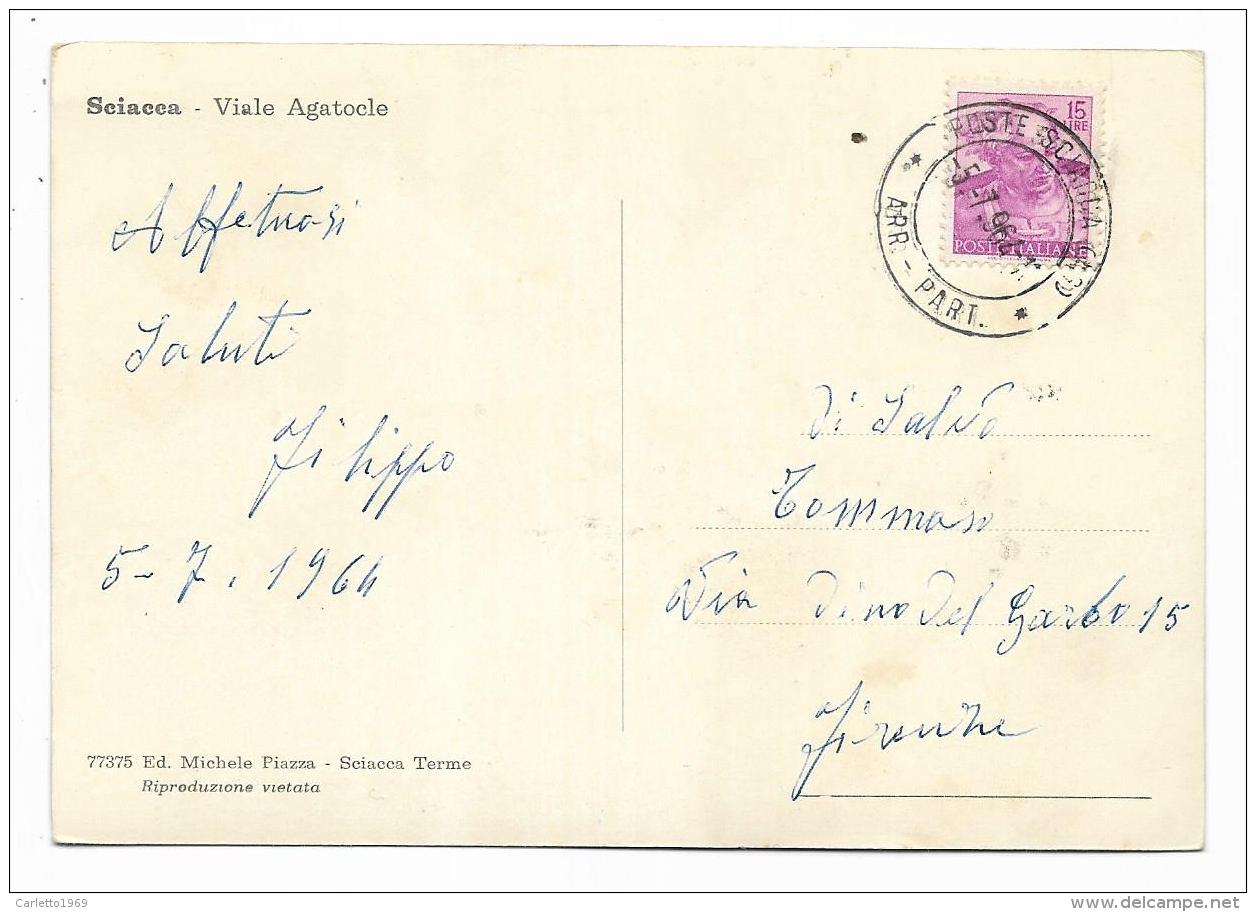 Sciacca - Viale Agatocle
Affetuosi
Saluti
Filippo
5-7.1964
77375 Ed. Michele Piazza - Sciacca Terme
Riproduzione vietata
15
LIRE
POSTE ITALIANE
POSTE SCIACCA
ARR. - PART.
5.-7.964
Di Salvo
Tommaso
Via Dino Del Garbo 15
Firenze
Carletto1969
delcampe.net